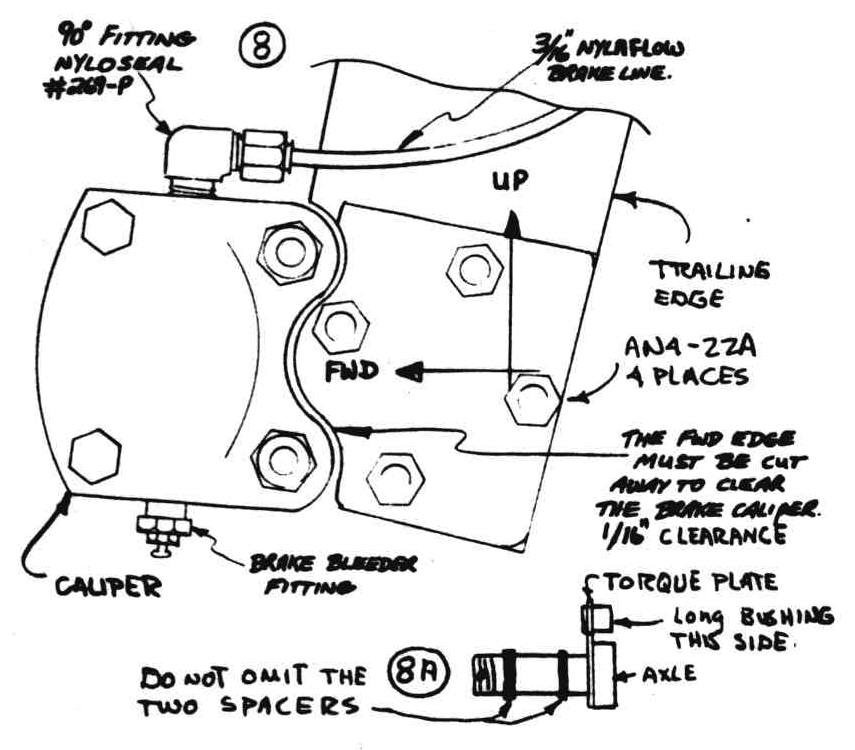 90° FITTING
NYLOSEAL
#269-P
8
3/16" NYLAFLOW
BRAKE LINE.
UP
TRAILING
EDGE
FWD
AN4-22A
4 PLACES
THE FWD EDGE
MUST BE CUT
AWAY TO CLEAR
THE BRAKE CALIPER.
1/16" CLEARANCE
CALIPER
BRAKE BLEEDER
FITTING
TORQUE PLATE
LONG BUSHING
THIS SIDE.
AXLE
8A
DO NOT OMIT THE
TWO SPACERS